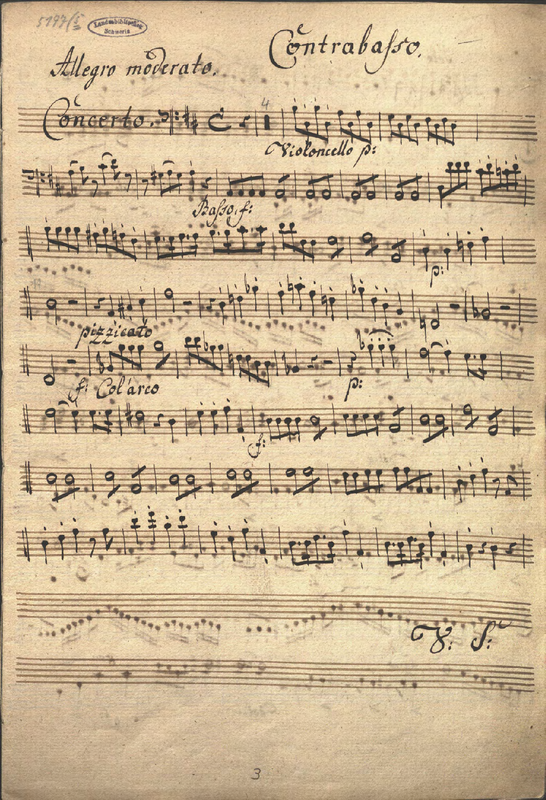 5197/5
Landesbibliothek
Schwerin
Contrabasso.
Allegro moderato.
Concerto.
4
Violoncello p:
Basso. f:
p:
pizzicato
f: Col'arco
p:
f:
V: S:
3